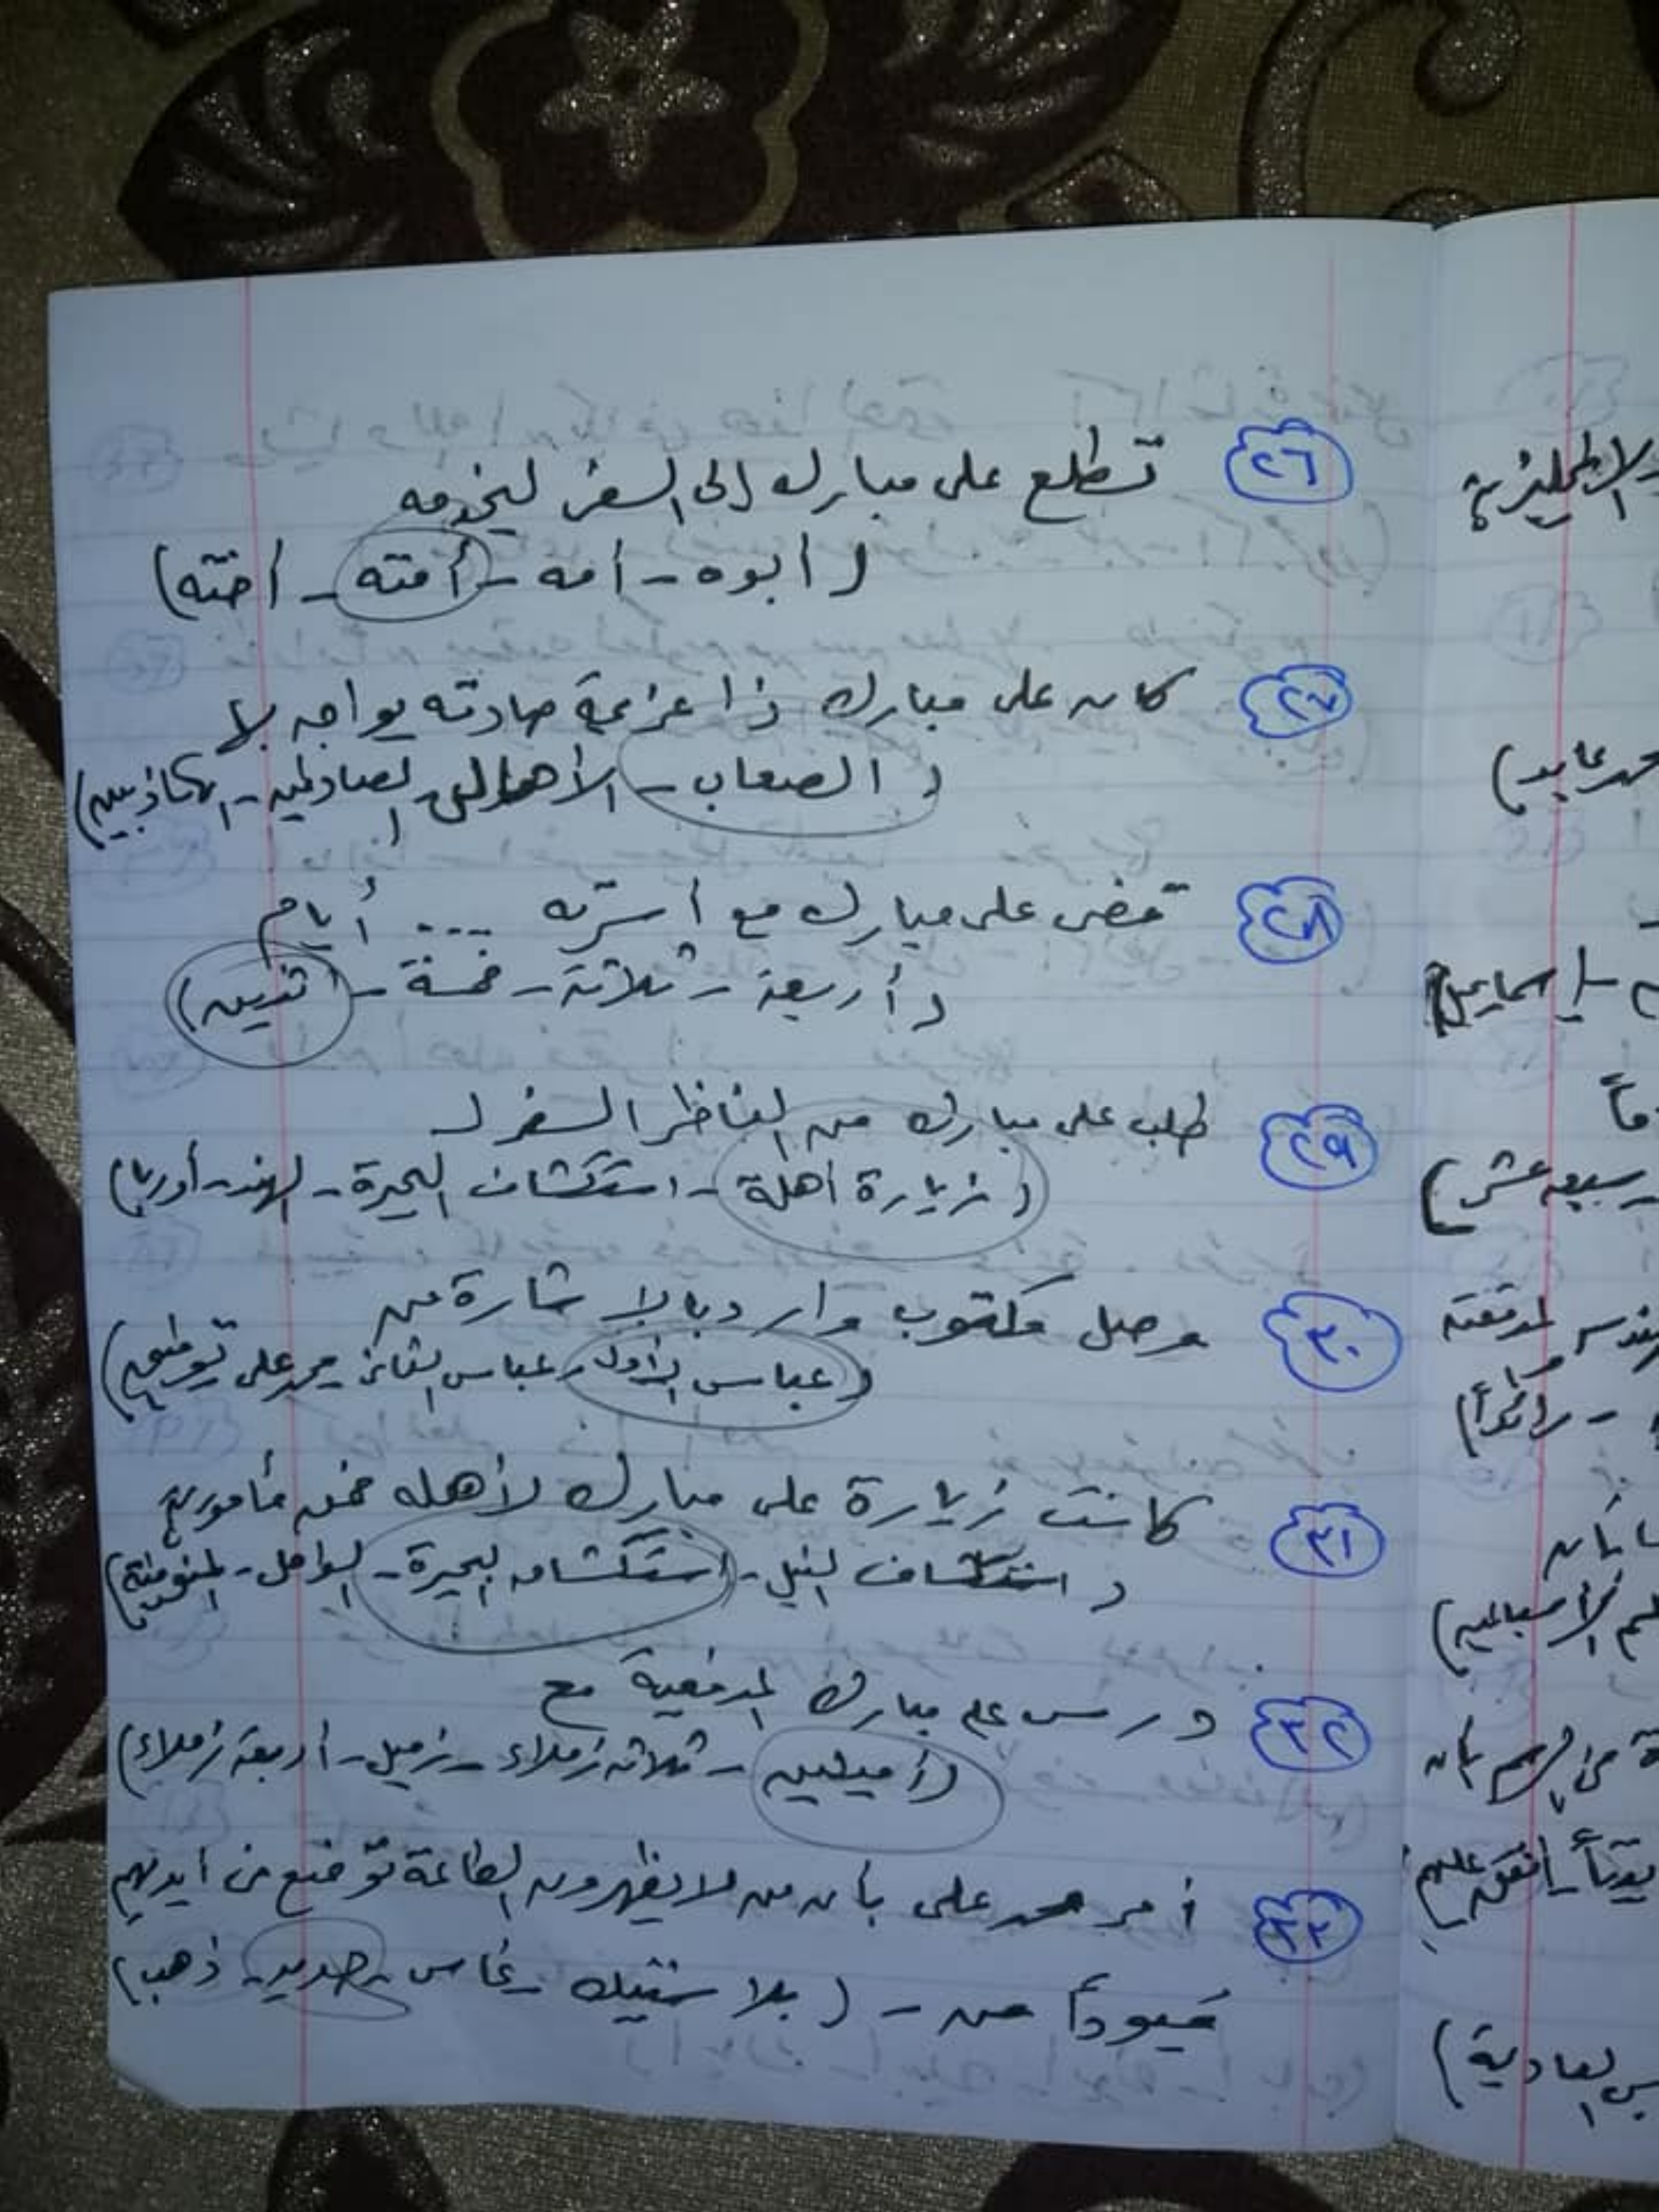 ٢٦ تطلع على مبارك إلى السفر ليخدم
(أبوه - أمه - أمته - أخته)
٢٧ كان على مبارك ذا عزيمة صادقه يواجه بها
(الصعاب - الأهوال - الصادقين - الكاذبين)
٢٨ قضى على مبارك مع أسرته .... أيام
(أربعة - ثلاثة - خمسة - اثنين)
٢٩ طلب على مبارك من الناظر السفر لـ
(زيارة أهلة - استكشاف البحيرة - الهند - أوربا)
٣٠ وصل مكتوب وارد بالإشارة من
(عباس الأول - عباس الثانى - محمد على - توفيق)
٣١ كانت زيارة على مبارك لأهله ضمن مأمورية
(استكشاف النيل - استكشاف البحيرة - السواحل - المنوفية)
٣٢ درس على مبارك المدفعية مع
(زميلين - ثلاثة زملاء - زميل - أربعة زملاء)
٣٣ أمر محمد على بأن من لا يظهرون الطاعة توضع فى ايديهم
قيوداً من - (بلاستيك - نحاس - حديد - ذهب)
الإنجليزية
محمد عابد)
إسماعيل)
سبعة عشر)
رائداً)
العادية)